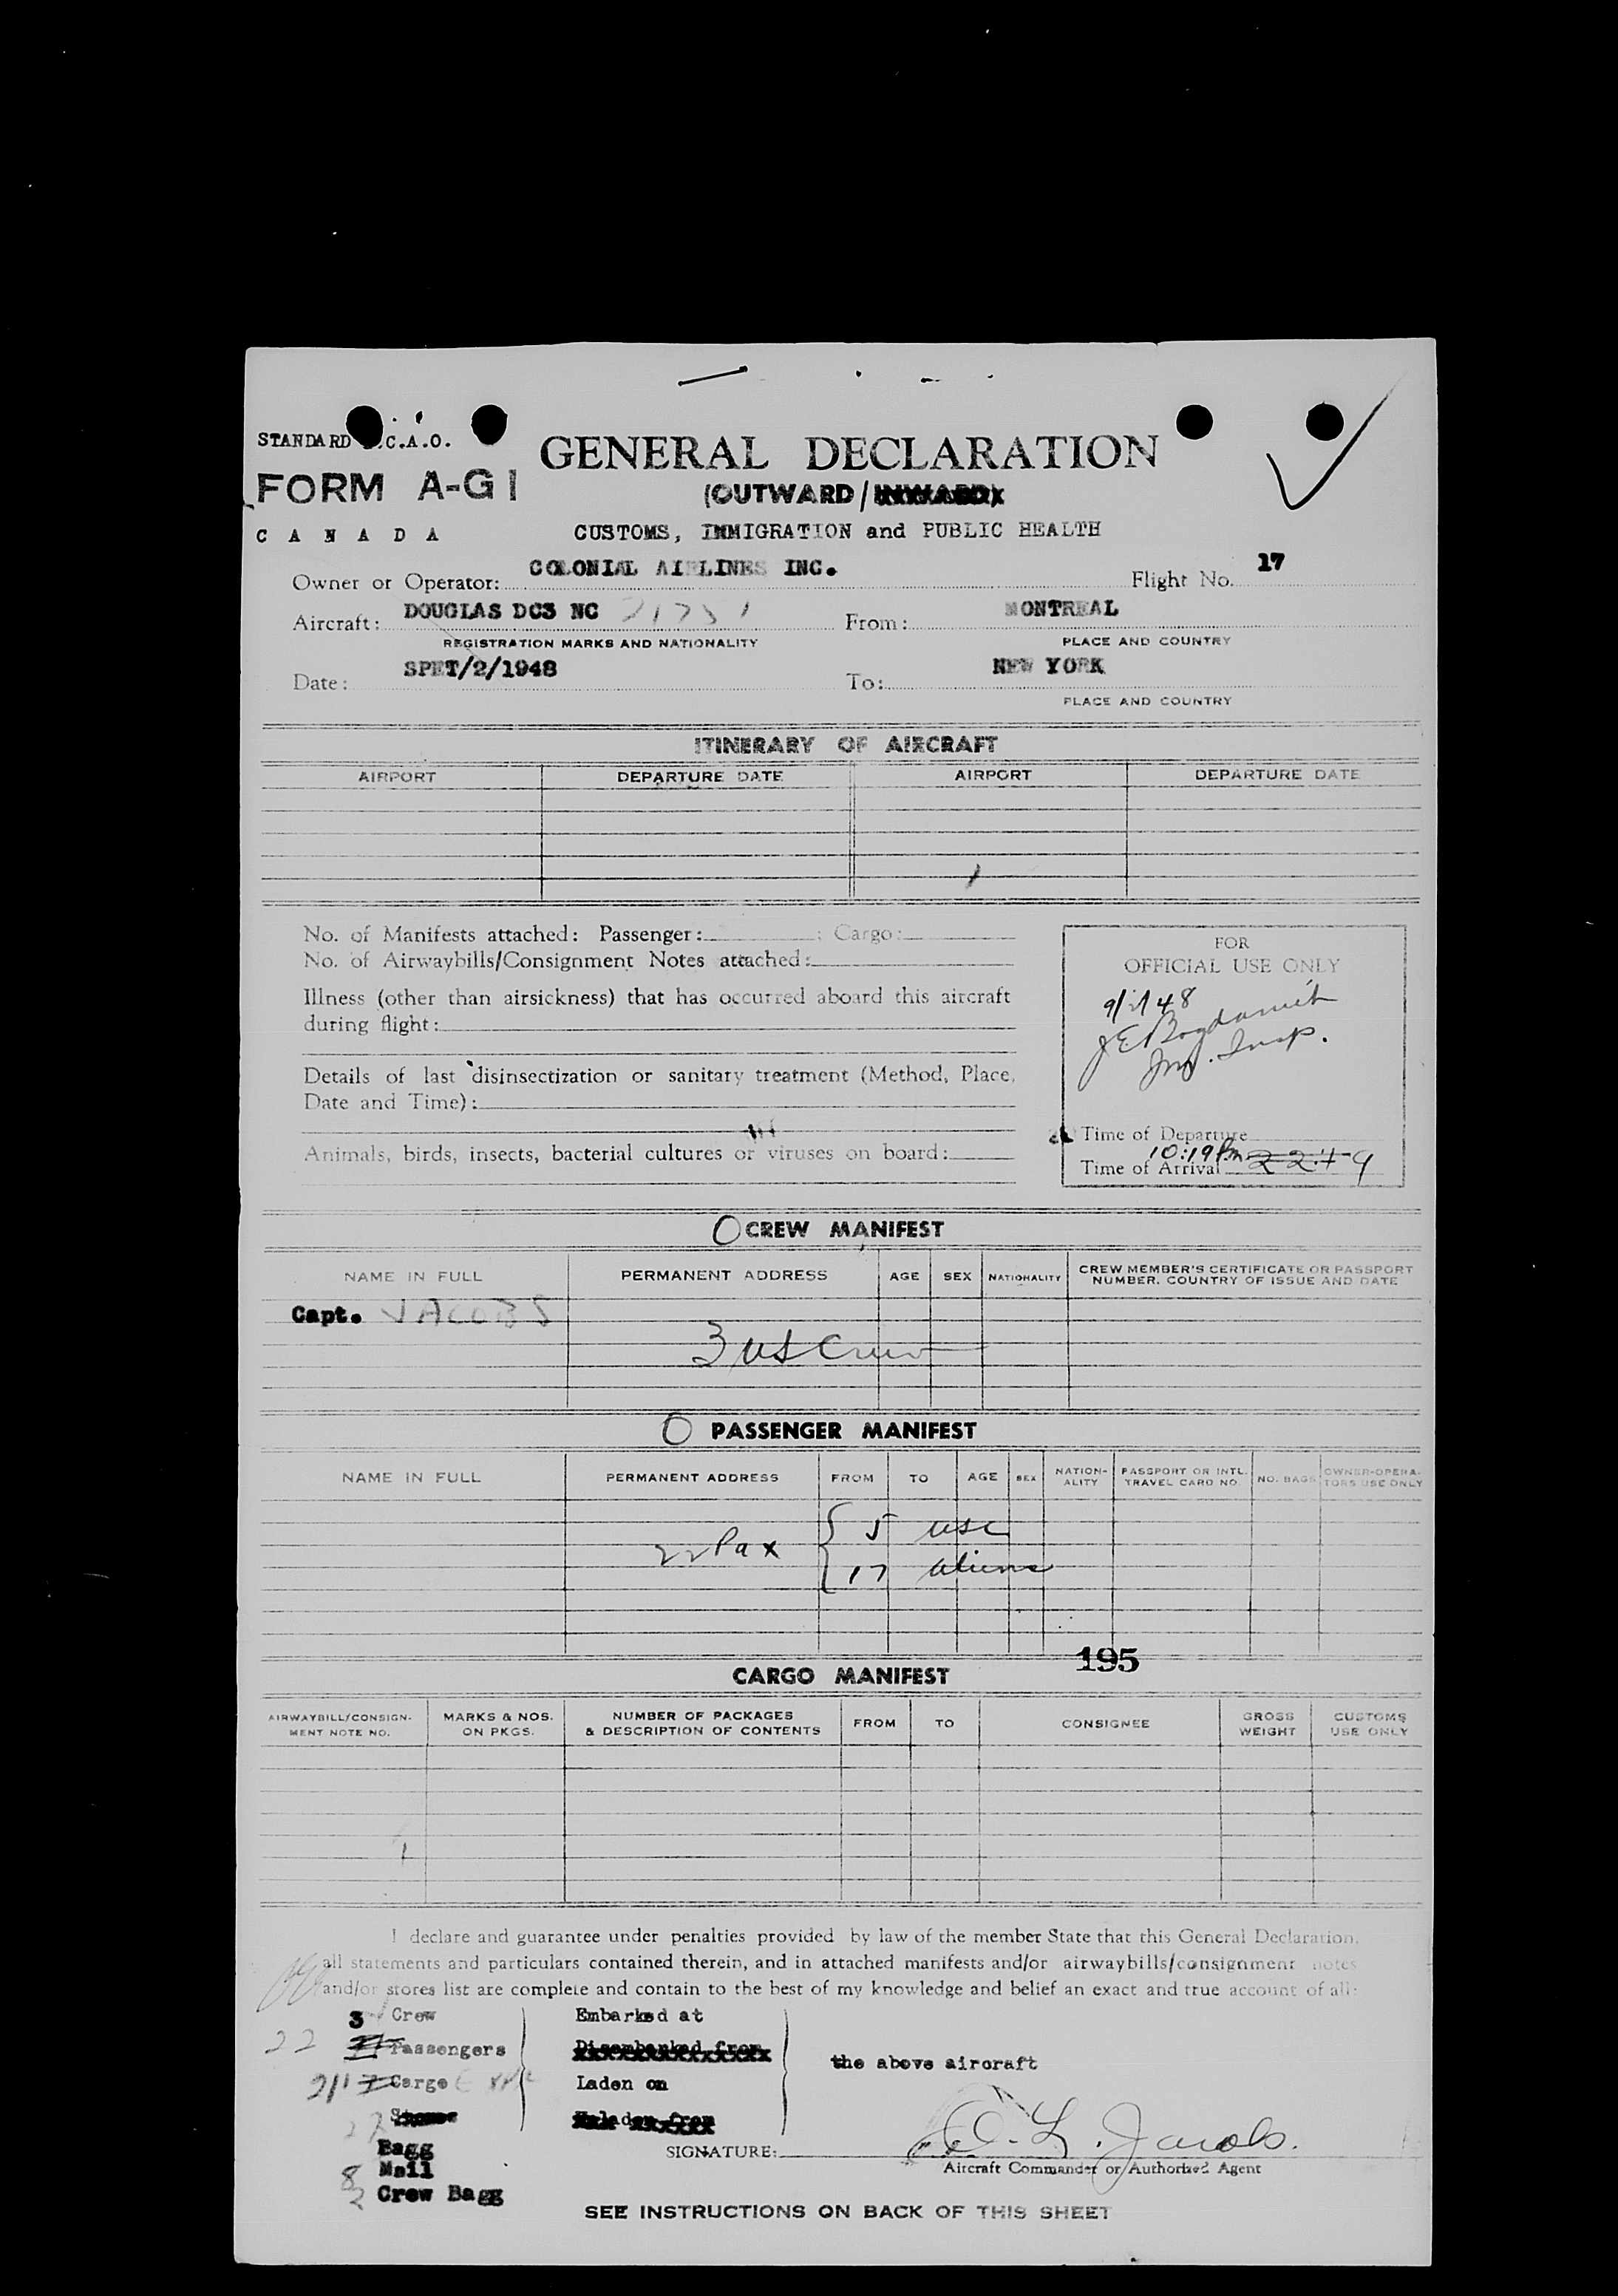 STANDARD I.C.A.O.
FORM A-G1
CANADA
GENERAL DECLARATION
(OUTWARD/INWARD)
CUSTOMS, IMMIGRATION and PUBLIC HEALTH
Owner or Operator: COLONIAL AIRLINES INC. Flight No. 17
Aircraft: DOUGLAS DC3 NC From: MONTREAL
REGISTRATION MARKS AND NATIONALITY PLACE AND COUNTRY
Date: SPET/2/1948 To: NEW YORK
PLACE AND COUNTRY
ITINERARY OF AIRCRAFT
AIRPORT DEPARTURE DATE AIRPORT DEPARTURE DATE
No. of Manifests attached: Passenger: ; Cargo:
No. of Airwaybills/Consignment Notes attached:
Illness (other than airsickness) that has occurred aboard this aircraft
during flight:
Details of last disinsectization or sanitary treatment (Method, Place,
Date and Time):
Animals, birds, insects, bacterial cultures or viruses on board:
FOR
OFFICIAL USE ONLY
9/2/48
J E Bogdanich
Imm. Insp.
Time of Departure
10:19 Pm
Time of Arrival 2219
CREW MANIFEST
NAME IN FULL PERMANENT ADDRESS AGE SEX NATIONALITY CREW MEMBER'S CERTIFICATE OR PASSPORT NUMBER, COUNTRY OF ISSUE AND DATE
Capt. JACOBS
3 US Crew
PASSENGER MANIFEST
NAME IN FULL PERMANENT ADDRESS FROM TO AGE SEX NATION-ALITY PASSPORT OR INTL. TRAVEL CARD NO. NO. BAGS OWNER-OPERA-TORS USE ONLY
22 Pax { 5 usc
17 aliens
195
CARGO MANIFEST
AIRWAYBILL/CONSIGN-MENT NOTE NO. MARKS & NOS. ON PKGS. NUMBER OF PACKAGES & DESCRIPTION OF CONTENTS FROM TO CONSIGNEE GROSS WEIGHT CUSTOMS USE ONLY
I declare and guarantee under penalties provided by law of the member State that this General Declaration,
all statements and particulars contained therein, and in attached manifests and/or airwaybills/consignment notes
and/or stores list are complete and contain to the best of my knowledge and belief an exact and true account of all:
3 Crew Embarked at
22 Passengers Disembarked from
the above aircraft
Cargo Laden on
Stores Unladen from
Bagg
8 Mail
2 Crew Bagg
SIGNATURE: O. L. Jacobs.
Aircraft Commander or Authorized Agent
SEE INSTRUCTIONS ON BACK OF THIS SHEET